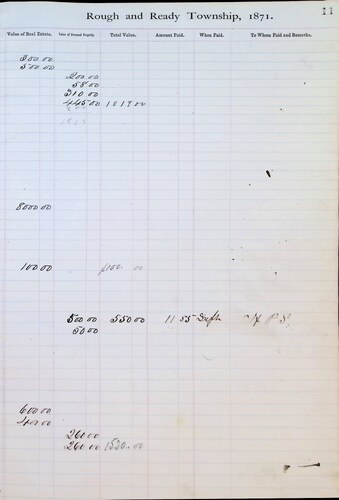 Rough and Ready Township, 1871.
11
Value of Real Estate. Value of Personal Property. Total Value. Amount Paid. When Paid. To Whom Paid and Remarks.
300.00
500.00
200.00
58.00
310.00
445.00 1019.00
8000.00
100.00 100. 00
500.00 550.00 11 55
50.00
600.00
400.00
260.00
260.00 1520.00